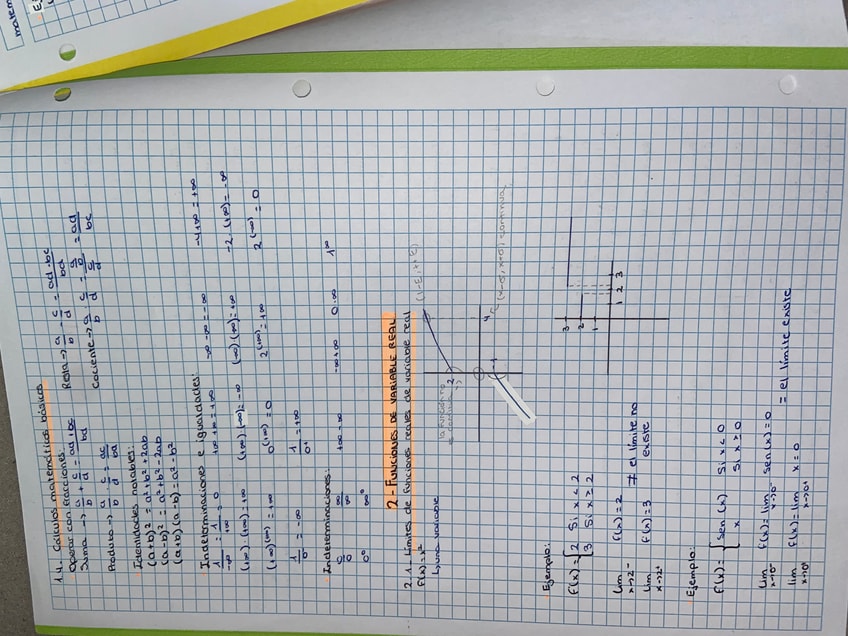 matem
Ej
1.4. Cálculos matemáticos básicos
Operar con fracciones:
Suma → a/b + c/d = ad+bc/bd    Resta → a/b - c/d = ad-bc/bd
Producto → a/b · c/d = ac/bd    Cociente → a/b : c/d = a/b / c/d = ad/bc
Identidades notables:
(a+b)² = a²+b²+2ab
(a-b)² = a²+b²-2ab
(a+b)(a-b) = a²-b²
Indeterminaciones e igualdades:
1/-∞ = 1/+∞ = 0    +∞+∞ = +∞    -∞-∞ = -∞    -4+∞ = +∞
(+∞)·(+∞) = +∞    (+∞)·(-∞) = -∞    (-∞)(-∞) = +∞    -2·(+∞) = -∞
(+∞)^(+∞) = +∞    0^(+∞) = 0    2^(+∞) = +∞    2^(-∞) = 0
1/0⁻ = -∞    1/0⁺ = +∞
Indeterminaciones:
0/0    ∞/∞    +∞-∞    -∞+∞    0·∞    1^∞
0⁰    ∞⁰
2-FUNCIONES DE VARIABLE REAL
2.1- Límites de funciones reales de variable real
f(x)=x²
la función no
2
4
-1
Ejemplo:
f(x) = { 2 Si x < 2
3 Si x ≥ 2
lim x→2⁻ f(x) = 2
lim x→2⁺ f(x) = 3
≠ el límite no
existe
3
2
1
1 2 3
Ejemplo:
f(x) = { sen(x) Si x < 0
x Si x ≥ 0
lim x→0⁻ f(x) = lim x→0⁻ sen(x) = 0
lim x→0⁺ f(x) = lim x→0⁺ x = 0
= el límite existe